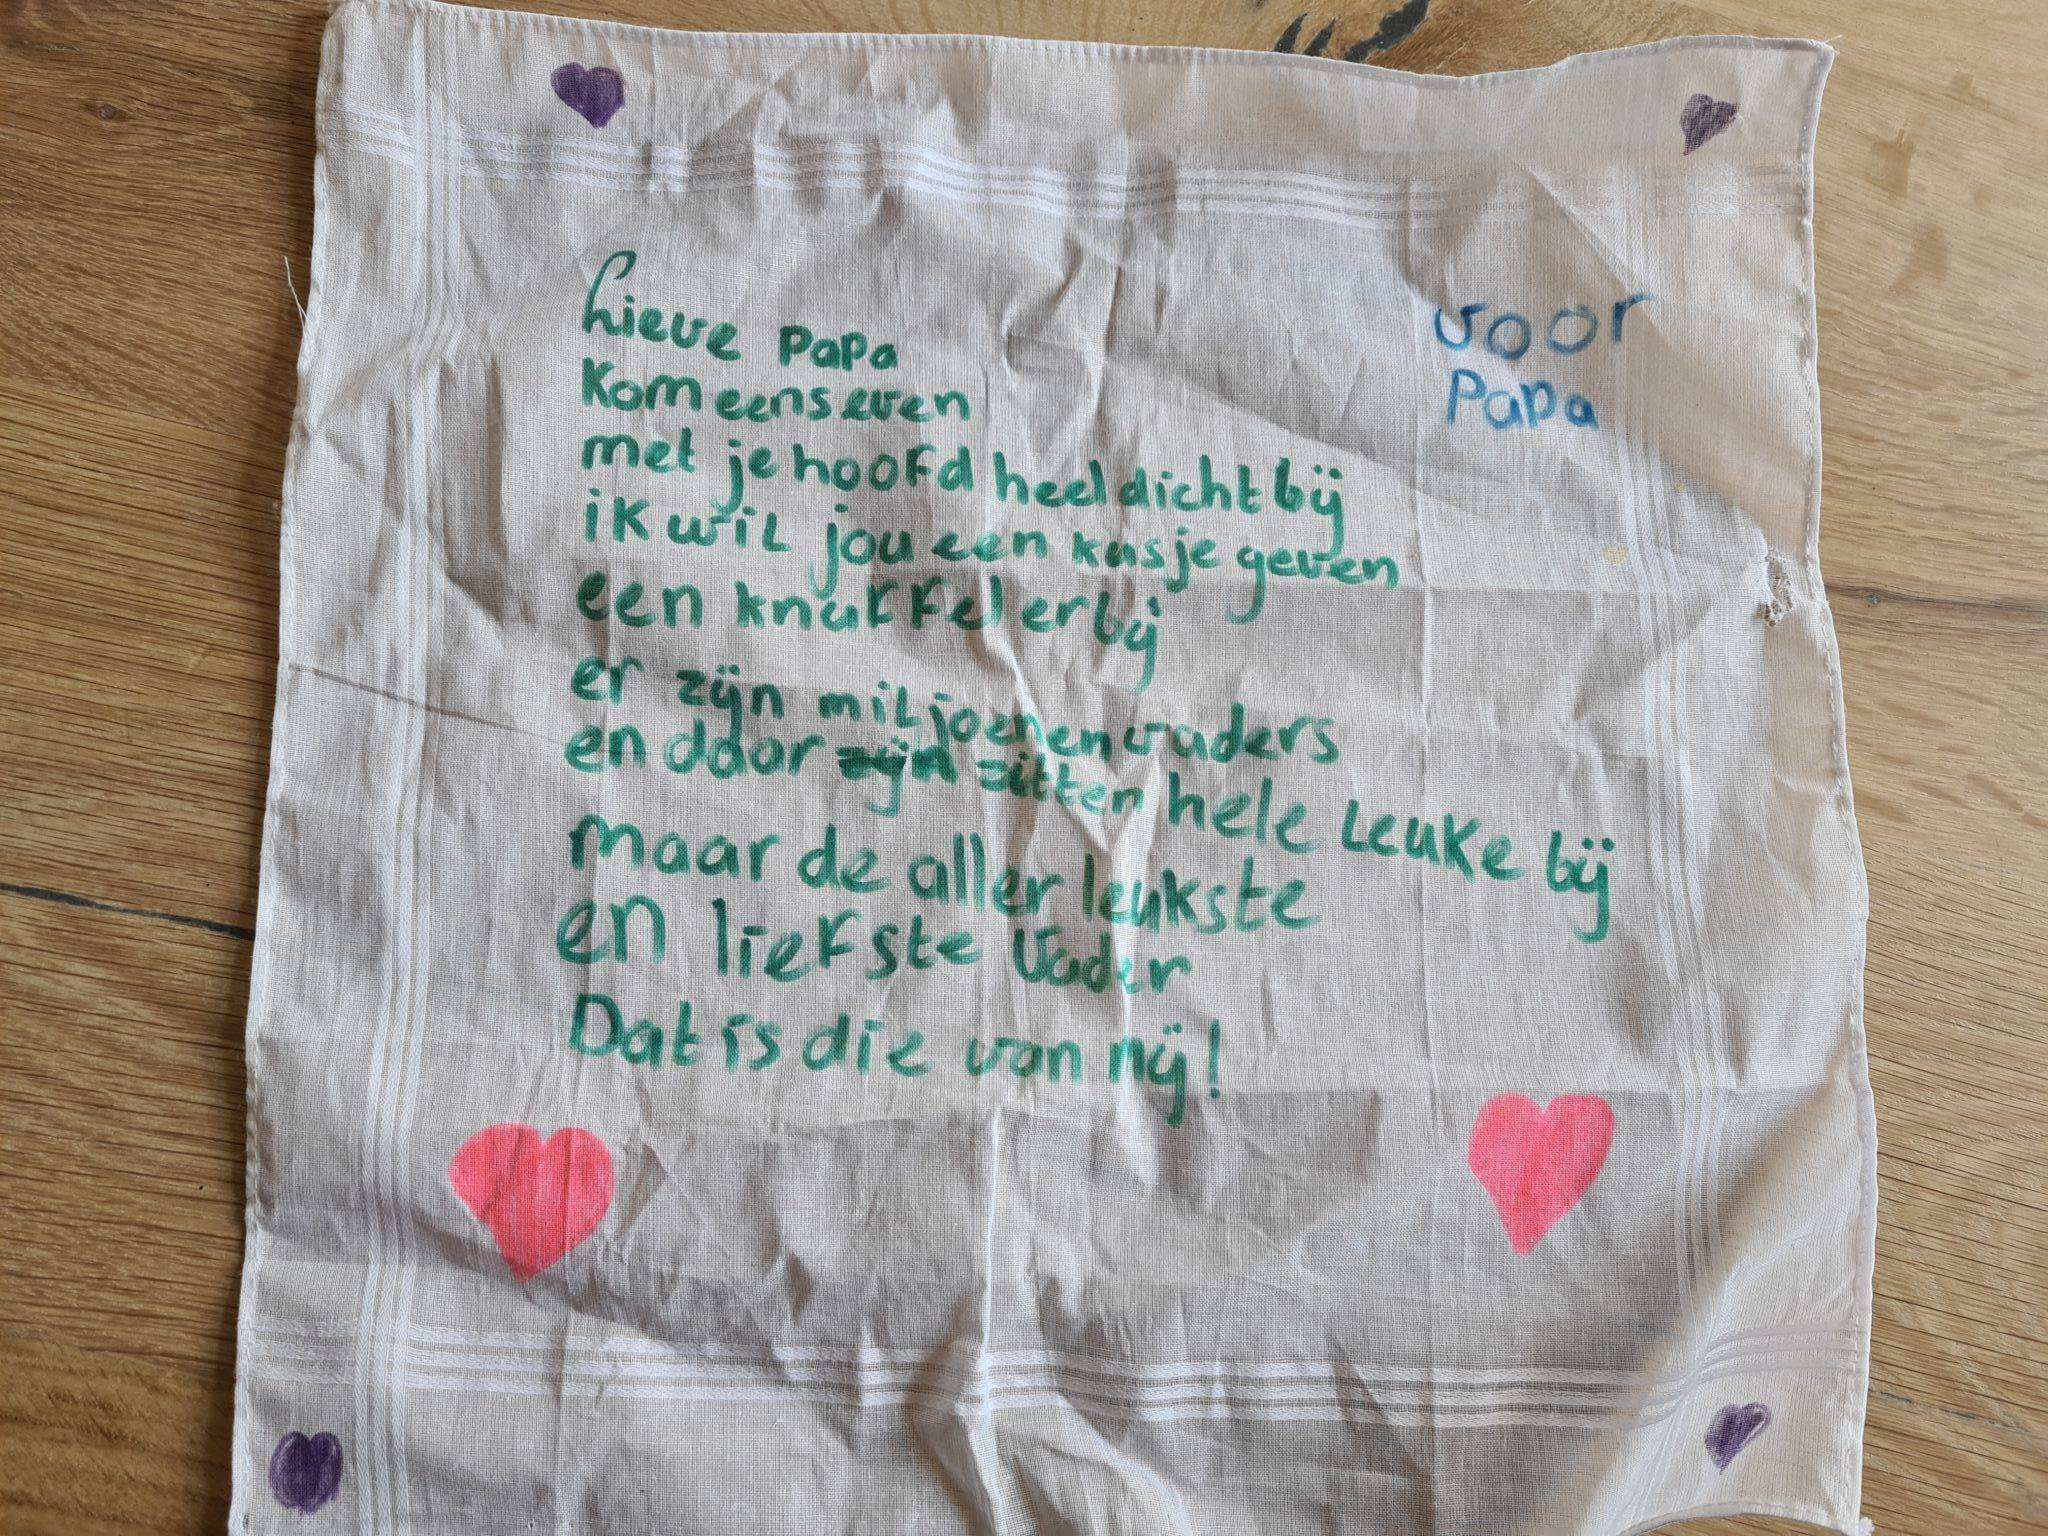 Lieve papa
Kom eens even
met je hoofd heel dicht bij
ik wil jou een kusje geven
een knuffel erbij
er zijn miljoenen vaders
en daar zijn zitten hele leuke bij
maar de aller leukste
en liefste vader
Dat is die van mij!
voor
Papa